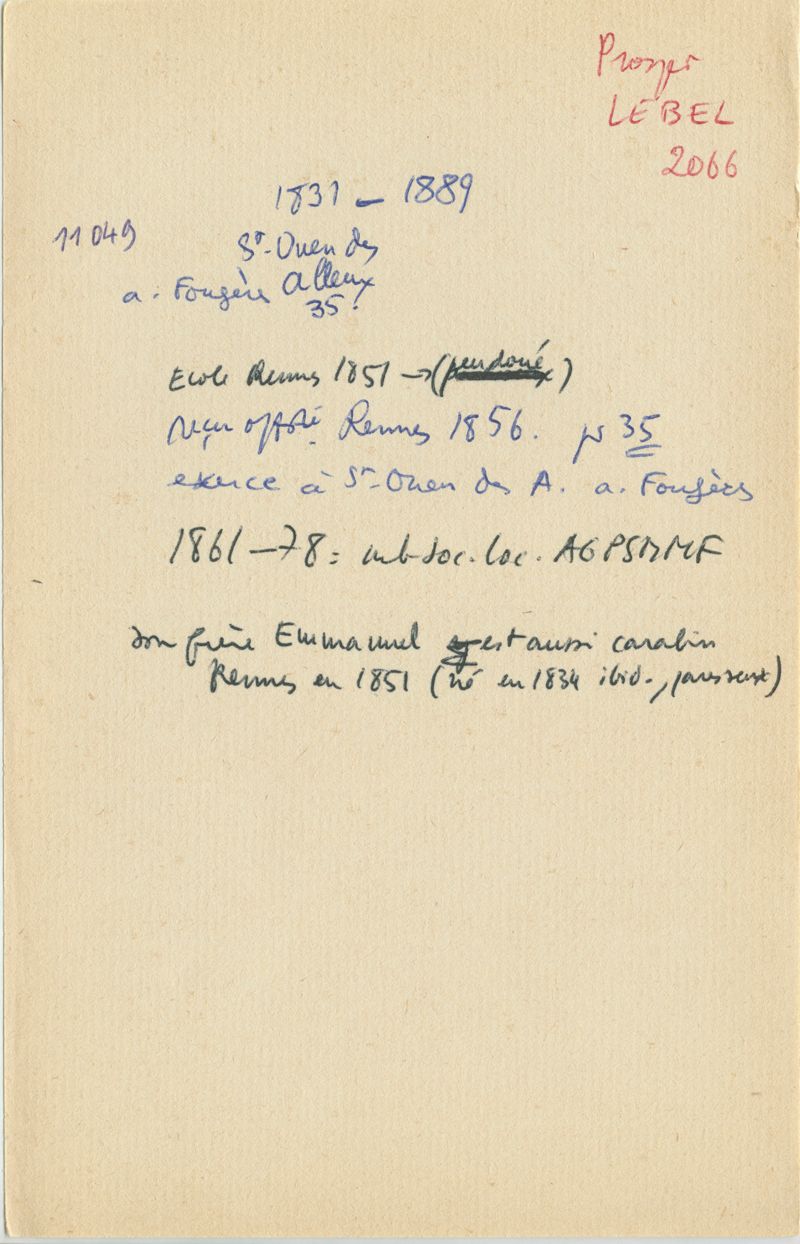 Prosper
LEBEL
2066
1831 - 1889
11 049
St-Ouen des
Alleux
a. Fougères
35.
Ecole Rennes 1851 → (peu doué)
reçu off. santé Rennes 1856. pr 35
exerce à St-Ouen des A. a. Fougères
1861-78 = mb soc. loc. AGPSMMF
son frère Emmanuel est aussi carabin
Rennes en 1851 (né en 1834 ibid., paresseux)